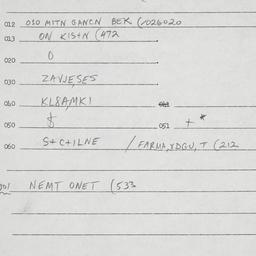 012 010 MITN GANCN BEK (/026020
013 ON KISTN (472
020 0
030 ZAVJE,SES
040 KL8A,MKI 041
050 $ 051 + *
060 S+C+ILNE / FARMA,YDGU,T (212
901 NEMT ONET (533